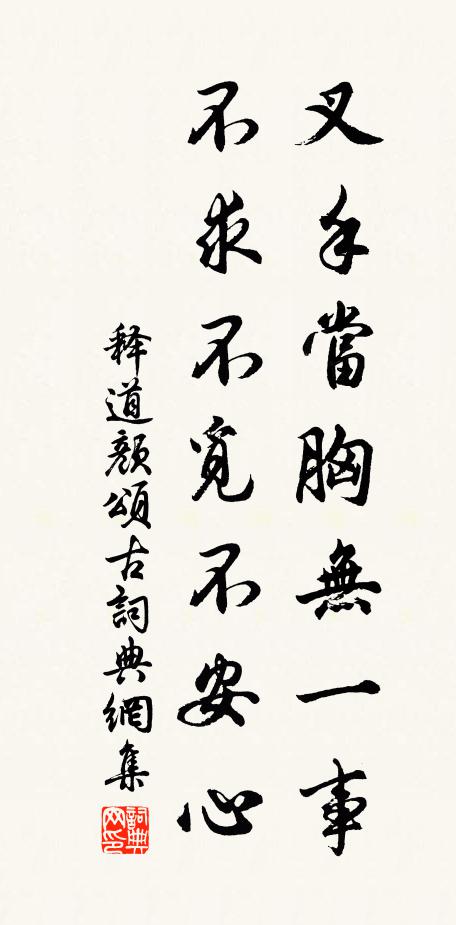 叉手當胸無一事
不求不覓不安心
释道顏頌古詞典網集
詞典网印